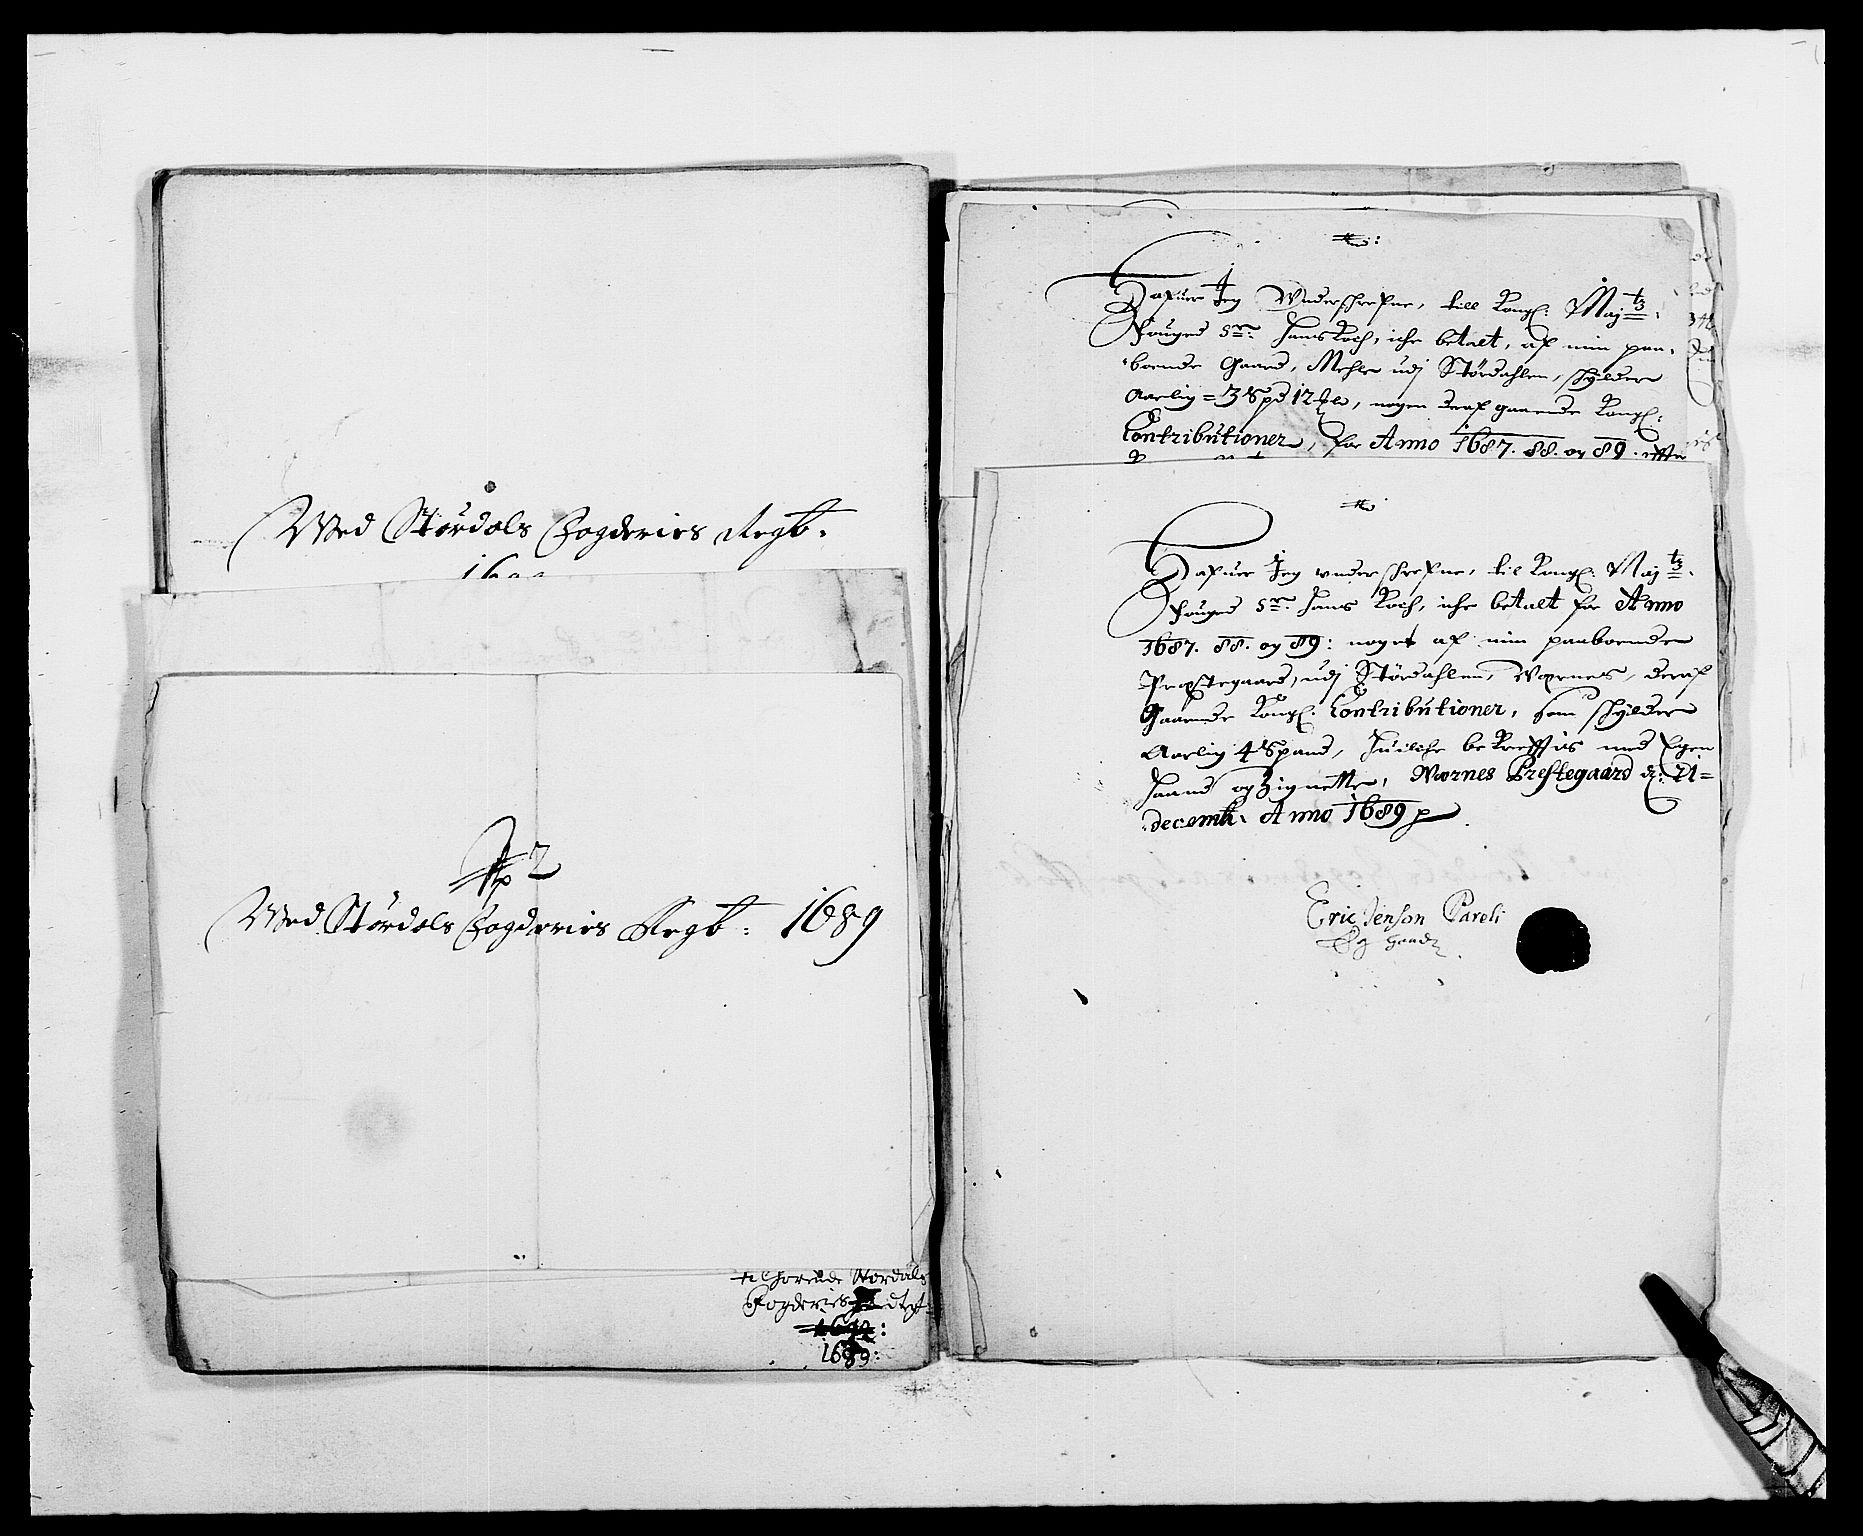 Med Stördals Fogderies Regb:
Med Stördals Fogderies Regb: 1689
tilhørende Stördals
Fogderies
1689:
Hafuer Jeg Underschrefne, till Kongl: Maj tz
Fouged Sr: Hans Koch, iche betalt, af min paa-
boende Gaard, Mehle udj Stördahlen, schylder
Aarlig = 3 Spd 12 , nogen deraf gaaende Kongl:
Contributioner, for Anno 1687. 88. og 89. effter
Hafuer Jeg underschrefne, til Kongl: Maj tz
Fouged Sr: Hans Koch, iche betalt for Anno
1687. 88. og 89: noget af min paaboende
Præstegaard, udj Stördahlen, Wærnes, deraf
Gaaende Kongl: Contributioner, som schylder
Aarlig 4 Spand, Huilche bekrefftis med Egen
Haand og Zignette, Wærnes Prestegaard d: 21=
decemb: Anno 1689
Eric Jenson Pareli
Eg Haand